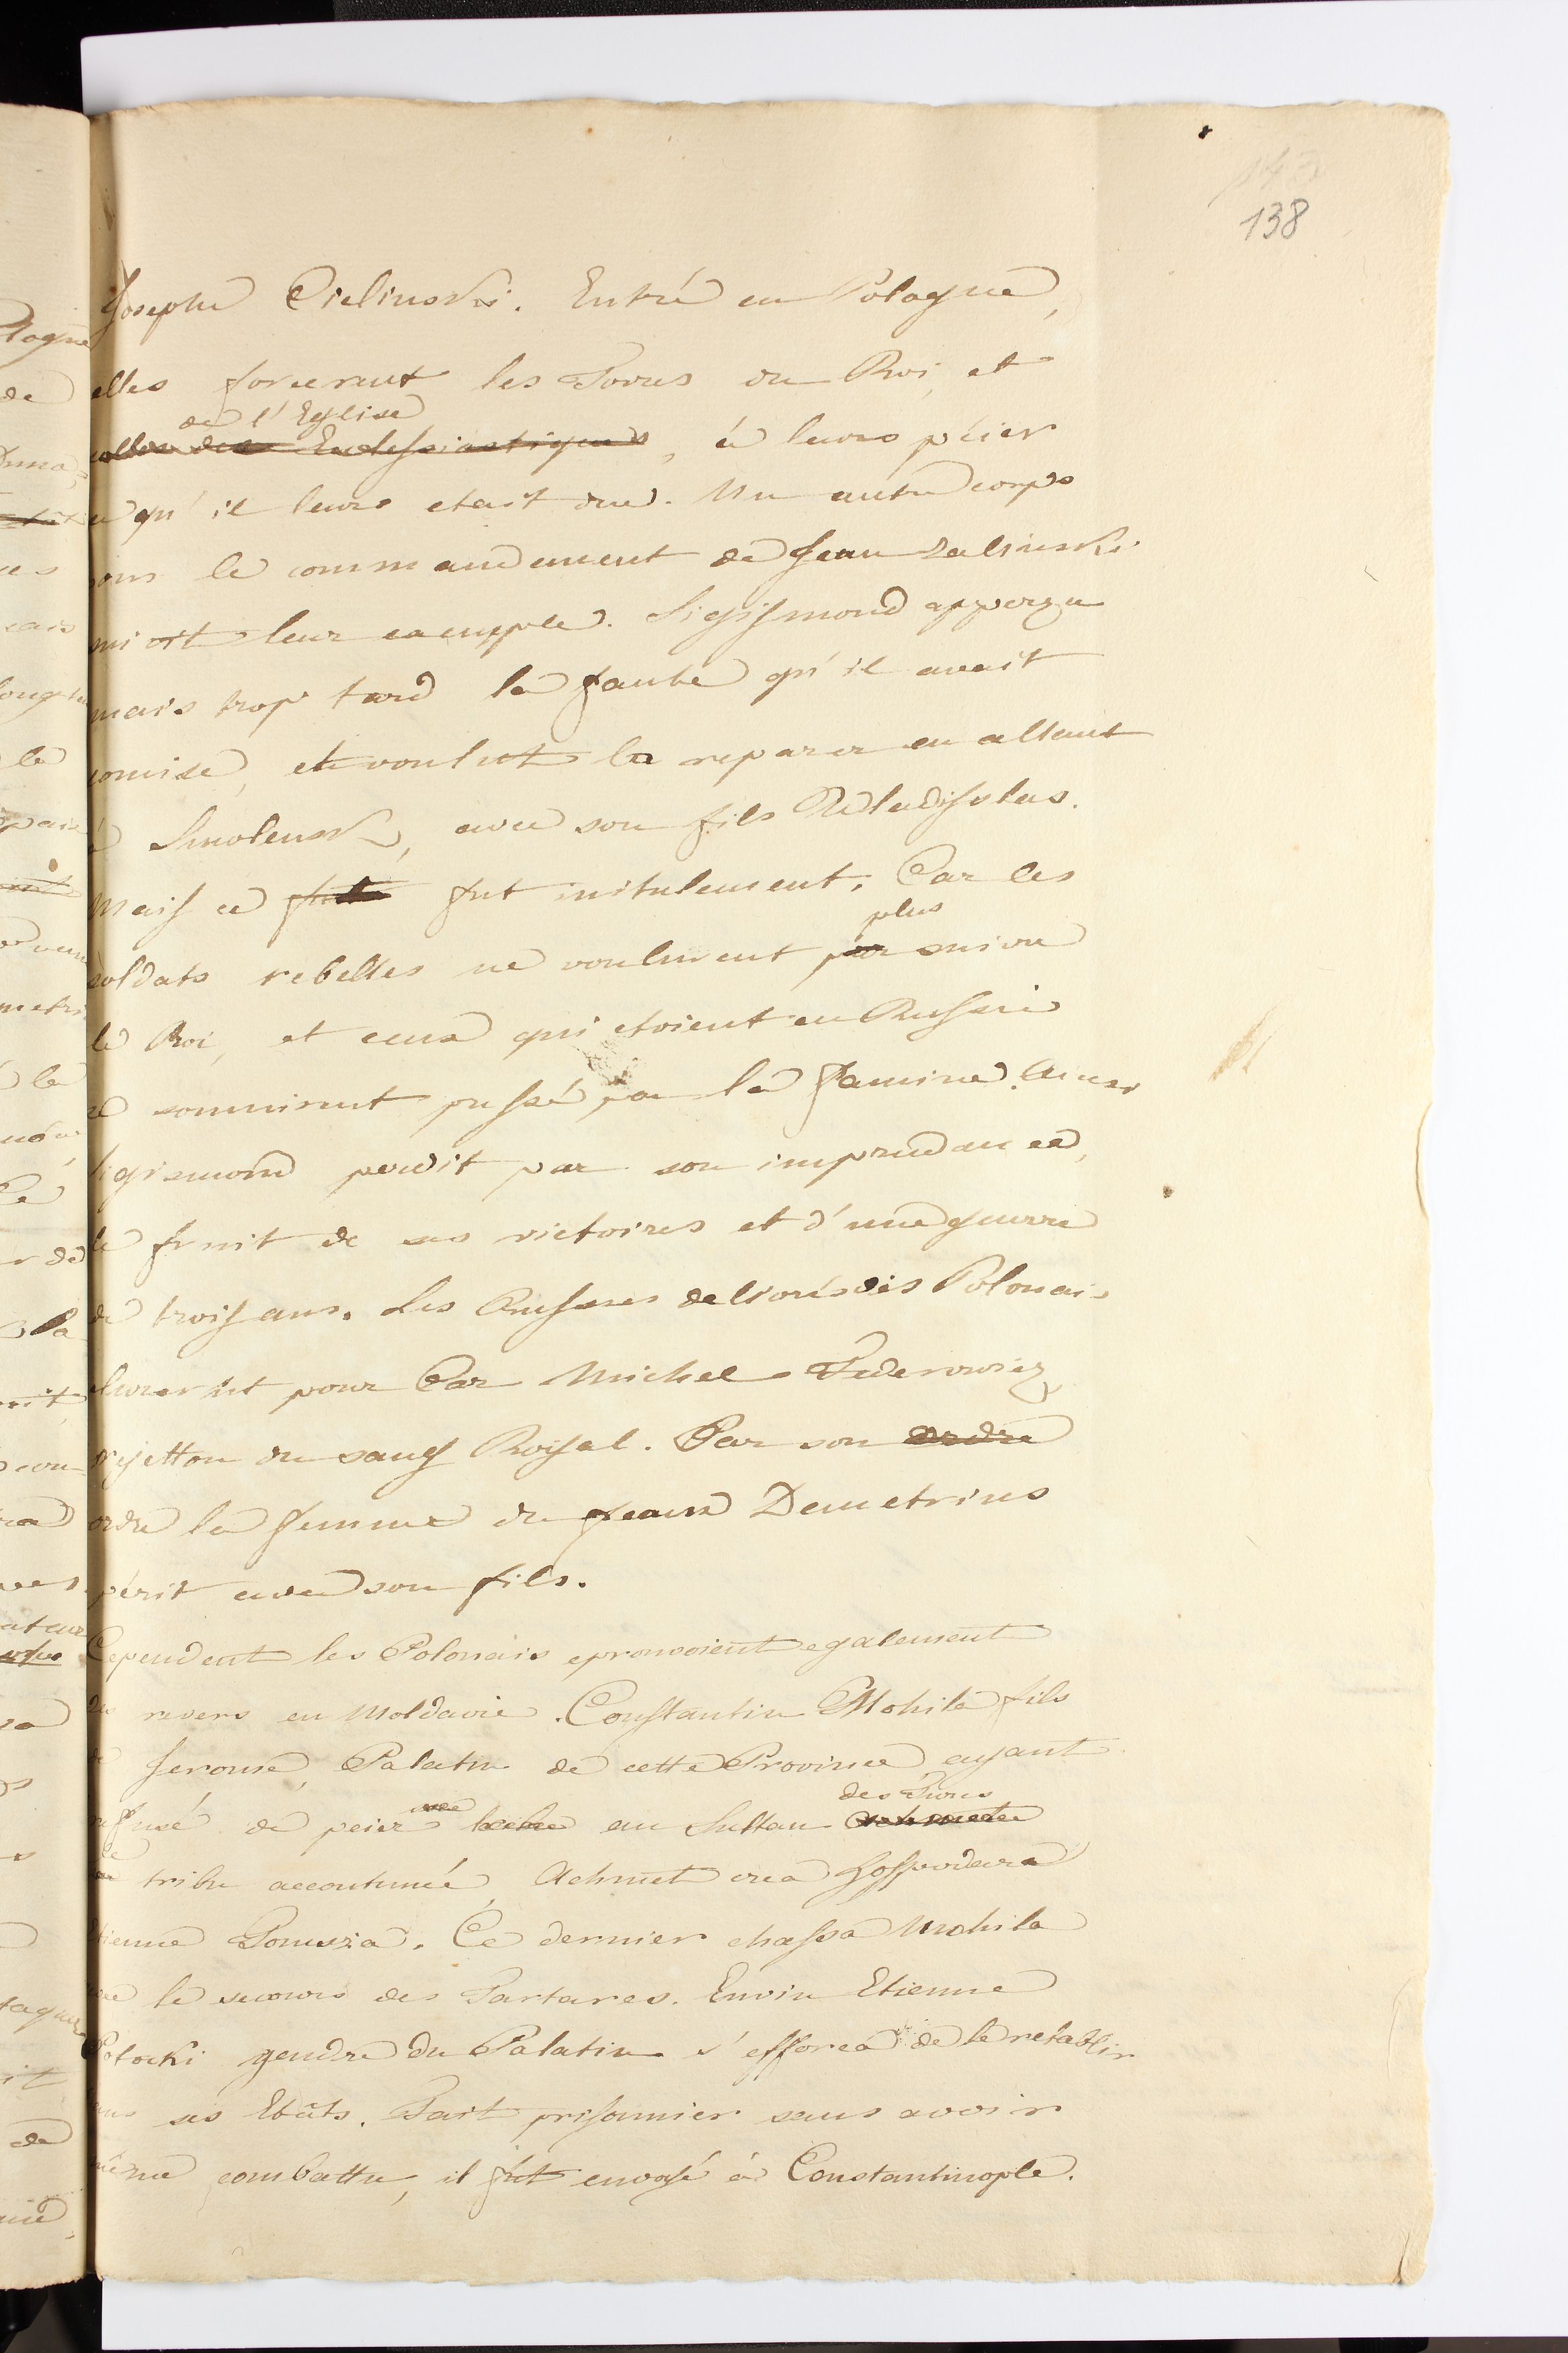 138
Joseph Cielinski. Entré en Pologne,
elles forcerent les Terres du Roi, et
de l'Eglise
celles des Ecclessiastiques, à leurs péier
ce qu'il leurs etait due. Un autre corps
sous le commandement de Jean Zalinski
imitt leur exemple. Sigissmond apperçu
mais trop tard la faute qu'il avait
comise, et voulut la reparer en allant
à Smolensk, avec son fils Wladisslas.
Mais ce fut inituleument, Car les
plus
soldats rebelles ne voulurent pas suivre
le Roi, et ceux qui etoient en Russie
se soumirent pressé par la famine. Ainsi
Sigismond perdit par son imprudance,
le fruit de ses victoires et d'une guerre
de trois ans. Les Russes delivrés des Polonais
elurerent pour Car Michel Federowicz
rejetton du sang Royal. Par son ordre
ordre la femme du feaux Demetrius
périt avec son fils.
Cependent les Polonais eprouvoient egalement
des revers en Moldavie. Constantin Mohila fils
de Jeromie, Palatin de cette Province ayant
des Turcs
refusé de peier au Sultan
le
tribu accoutumée, Achmet crea Hosspodara
Etienne Tomsza. Ce dernier chassa Mohila
avec le secours des Tartares. Envin Etienne
Potocki gendre du Palatin s'efforca de le retablir
dans ses Etâts. Fait prisonnier sans avoir
même combattu, il fut envoyé à Constantinople.